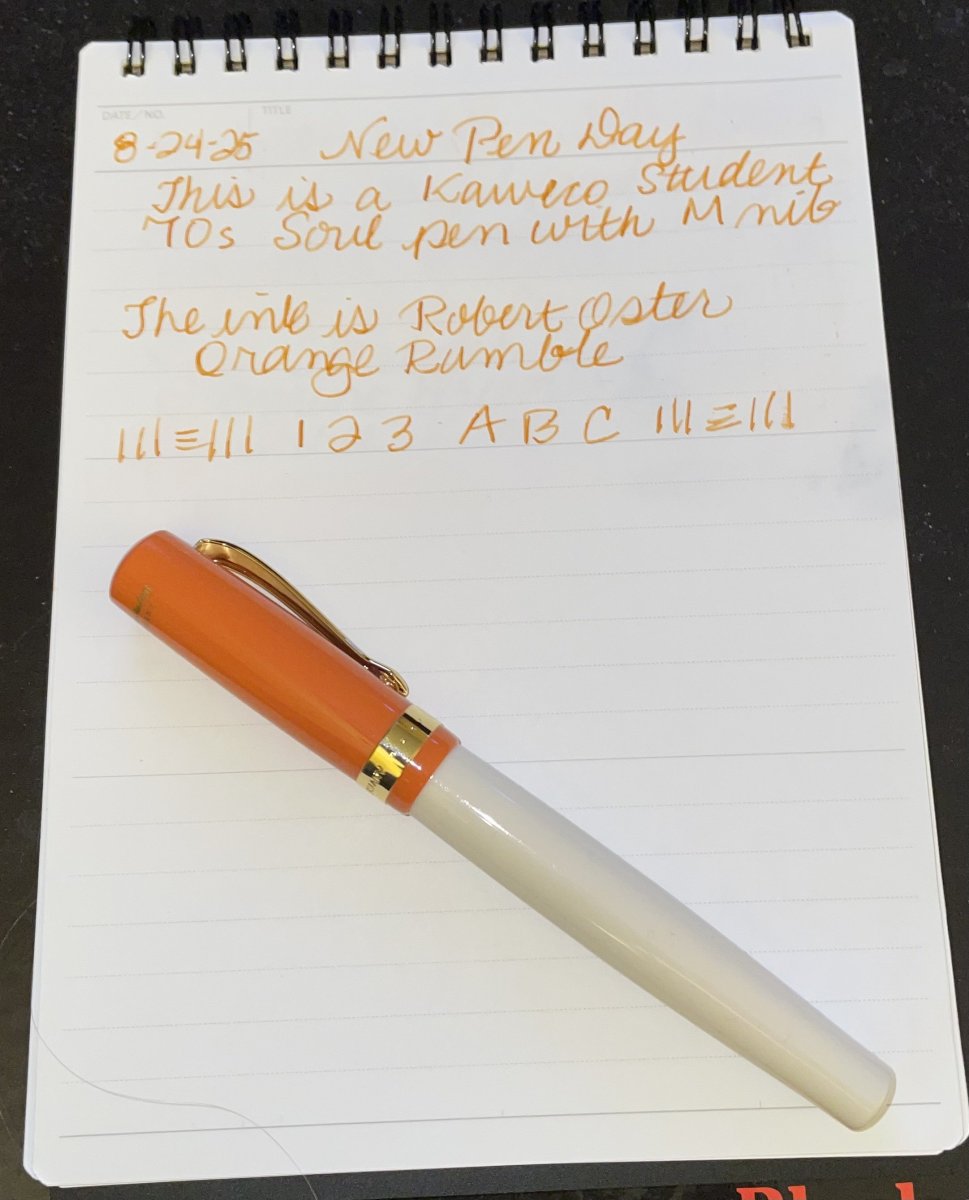 DATE/NO. TITLE
8-24-25 New Pen Day
This is a Kaweco Student
70s Soul pen with M nib
The ink is Robert Oster
Orange Rumble
111≡111 1 2 3 A B C 111≡111